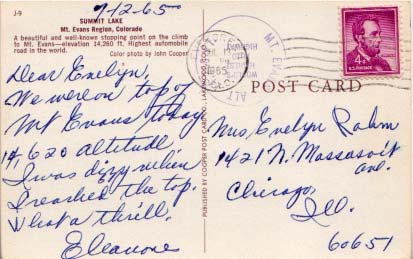 J-9
9-12-65
SUMMIT LAKE
Mt. Evans Region, Colorado
A beautiful and well-known stopping point on the climb
to Mt. Evans—elevation 14,260 ft. Highest automobile
road in the world.
Color photo by John Cooper
Dear Evelyn,
We were on top of
Mt Evans today
14,620 altitude,
I was dizzy when
I reached the top.
What a thrill,
Eleanore
PUBLISHED BY COOPER POST CARD
1965
MT. EV
ALT
4¢
U.S. POSTAGE
POST CARD
Mrs. Evelyn Rahm
1421 N. Massasoit
ave.
Chicago,
Ill.
60651